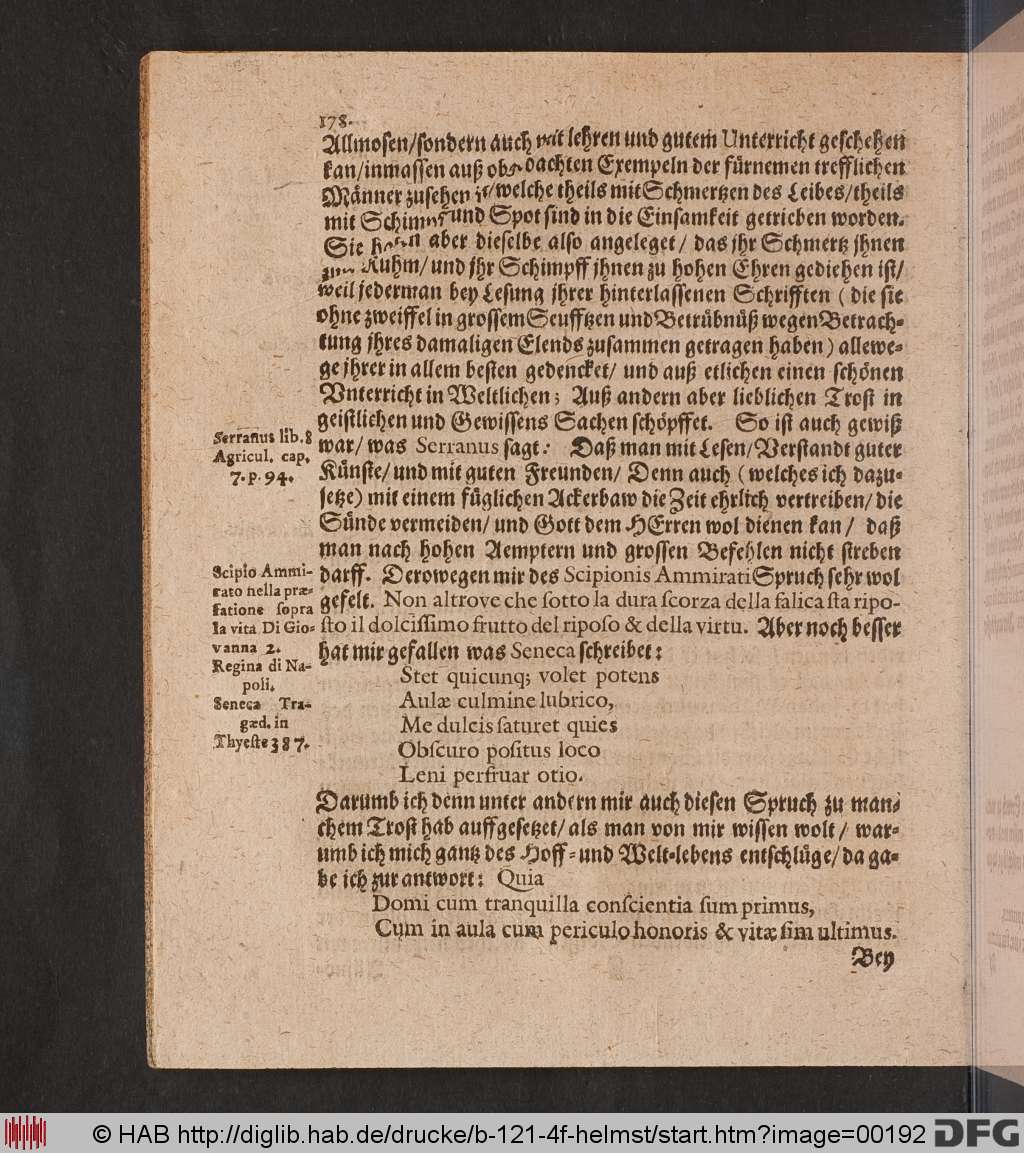 178.
Allmosen/sondern auch mit lehren und gutem Unterricht geschehen
kan/inmassen auß obgedachten Exempeln der fürnemen trefflichen
Männer zusehen ist/welche theils mit Schmertzen des Leibes/theils
mit Schimpf und Spot sind in die Einsamkeit getrieben worden.
Sie haben aber dieselbe also angeleget/ das jhr Schmertz jhnen
zum Ruhm/ und jhr Schimpff jhnen zu hohen Ehren gediehen ist/
weil jederman bey Lesung jhrer hinterlassenen Schrifften ( die sie
ohne zweiffel in grossem Seufftzen und Betrübnüß wegen Betrach-
tung jhres damaligen Elends zusammen getragen haben ) allewe-
ge jhrer in allem besten gedencket/ und auß etlichen einen schönen
Vnterricht in Weltlichen; Auß andern aber lieblichen Trost in
geistlichen und Gewissens Sachen schöpffet. So ist auch gewiß
Serranus lib. 8
Agricul. cap.
7. p. 94.
war/ was Serranus sagt: Daß man mit Lesen/Verstandt guter
Künste/ und mit guten Freunden/ Denn auch ( welches ich dazu-
setze) mit einem füglichen Ackerbaw die Zeit ehrlich vertreiben/ die
Sünde vermeiden/ und Gott dem HErren wol dienen kan/ daß
man nach hohen Aemptern und grossen Befehlen nicht streben
Scipio Ammi-
rato nella præ-
fatione sopra
la vita Di Gio-
vanna 2.
Regina di Na-
poli.
darff. Derowegen mir des Scipionis Ammirati Spruch sehr wol
gefelt. Non altrove che sotto la dura scorza della falica sta ripo-
sto il dolcissimo frutto del riposo & della virtu. Aber noch besser
hat mir gefallen was Seneca schreibet:
Seneca Tra-
gæd. in
Thyeste 387.
Stet quicunq; volet potens
Aulæ culmine lubrico,
Me dulcis saturet quies
Obscuro positus loco
Leni perfruar otio.
Darumb ich denn unter andern mir auch diesen Spruch zu man-
chem Trost hab auffgesetzet/ als man von mir wissen wolt / war-
umb ich mich gantz des Hoff- und Welt-lebens entschlüge/ da ga-
be ich zur antwort: Quia
Domi cum tranquilla conscientia sum primus,
Cum in aula cum periculo honoris & vitæ sim ultimus.
Bey
© HAB http://diglib.hab.de/drucke/b-121-4f-helmst/start.htm?image=00192 DFG